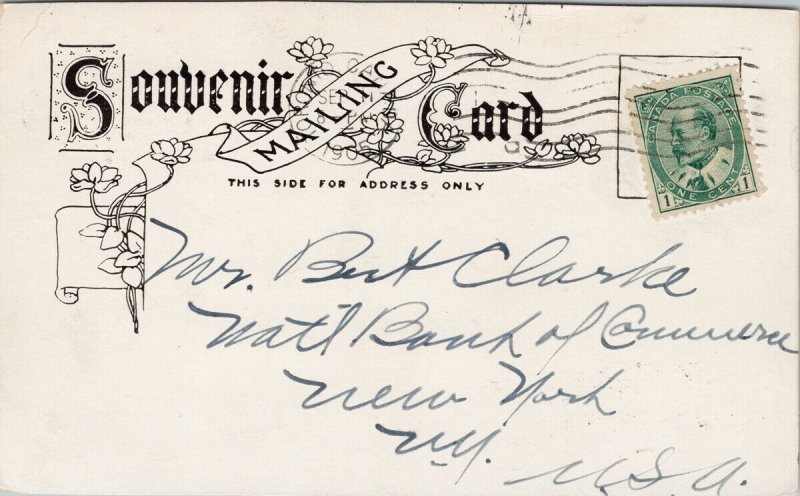 Souvenir MAILING Card
THIS SIDE FOR ADDRESS ONLY
CANADA POSTAGE
1 ONE CENT 1
Mr. Bert Clarke
Nat'l Bank of Commerce
New York
N.Y.
U.S.A.